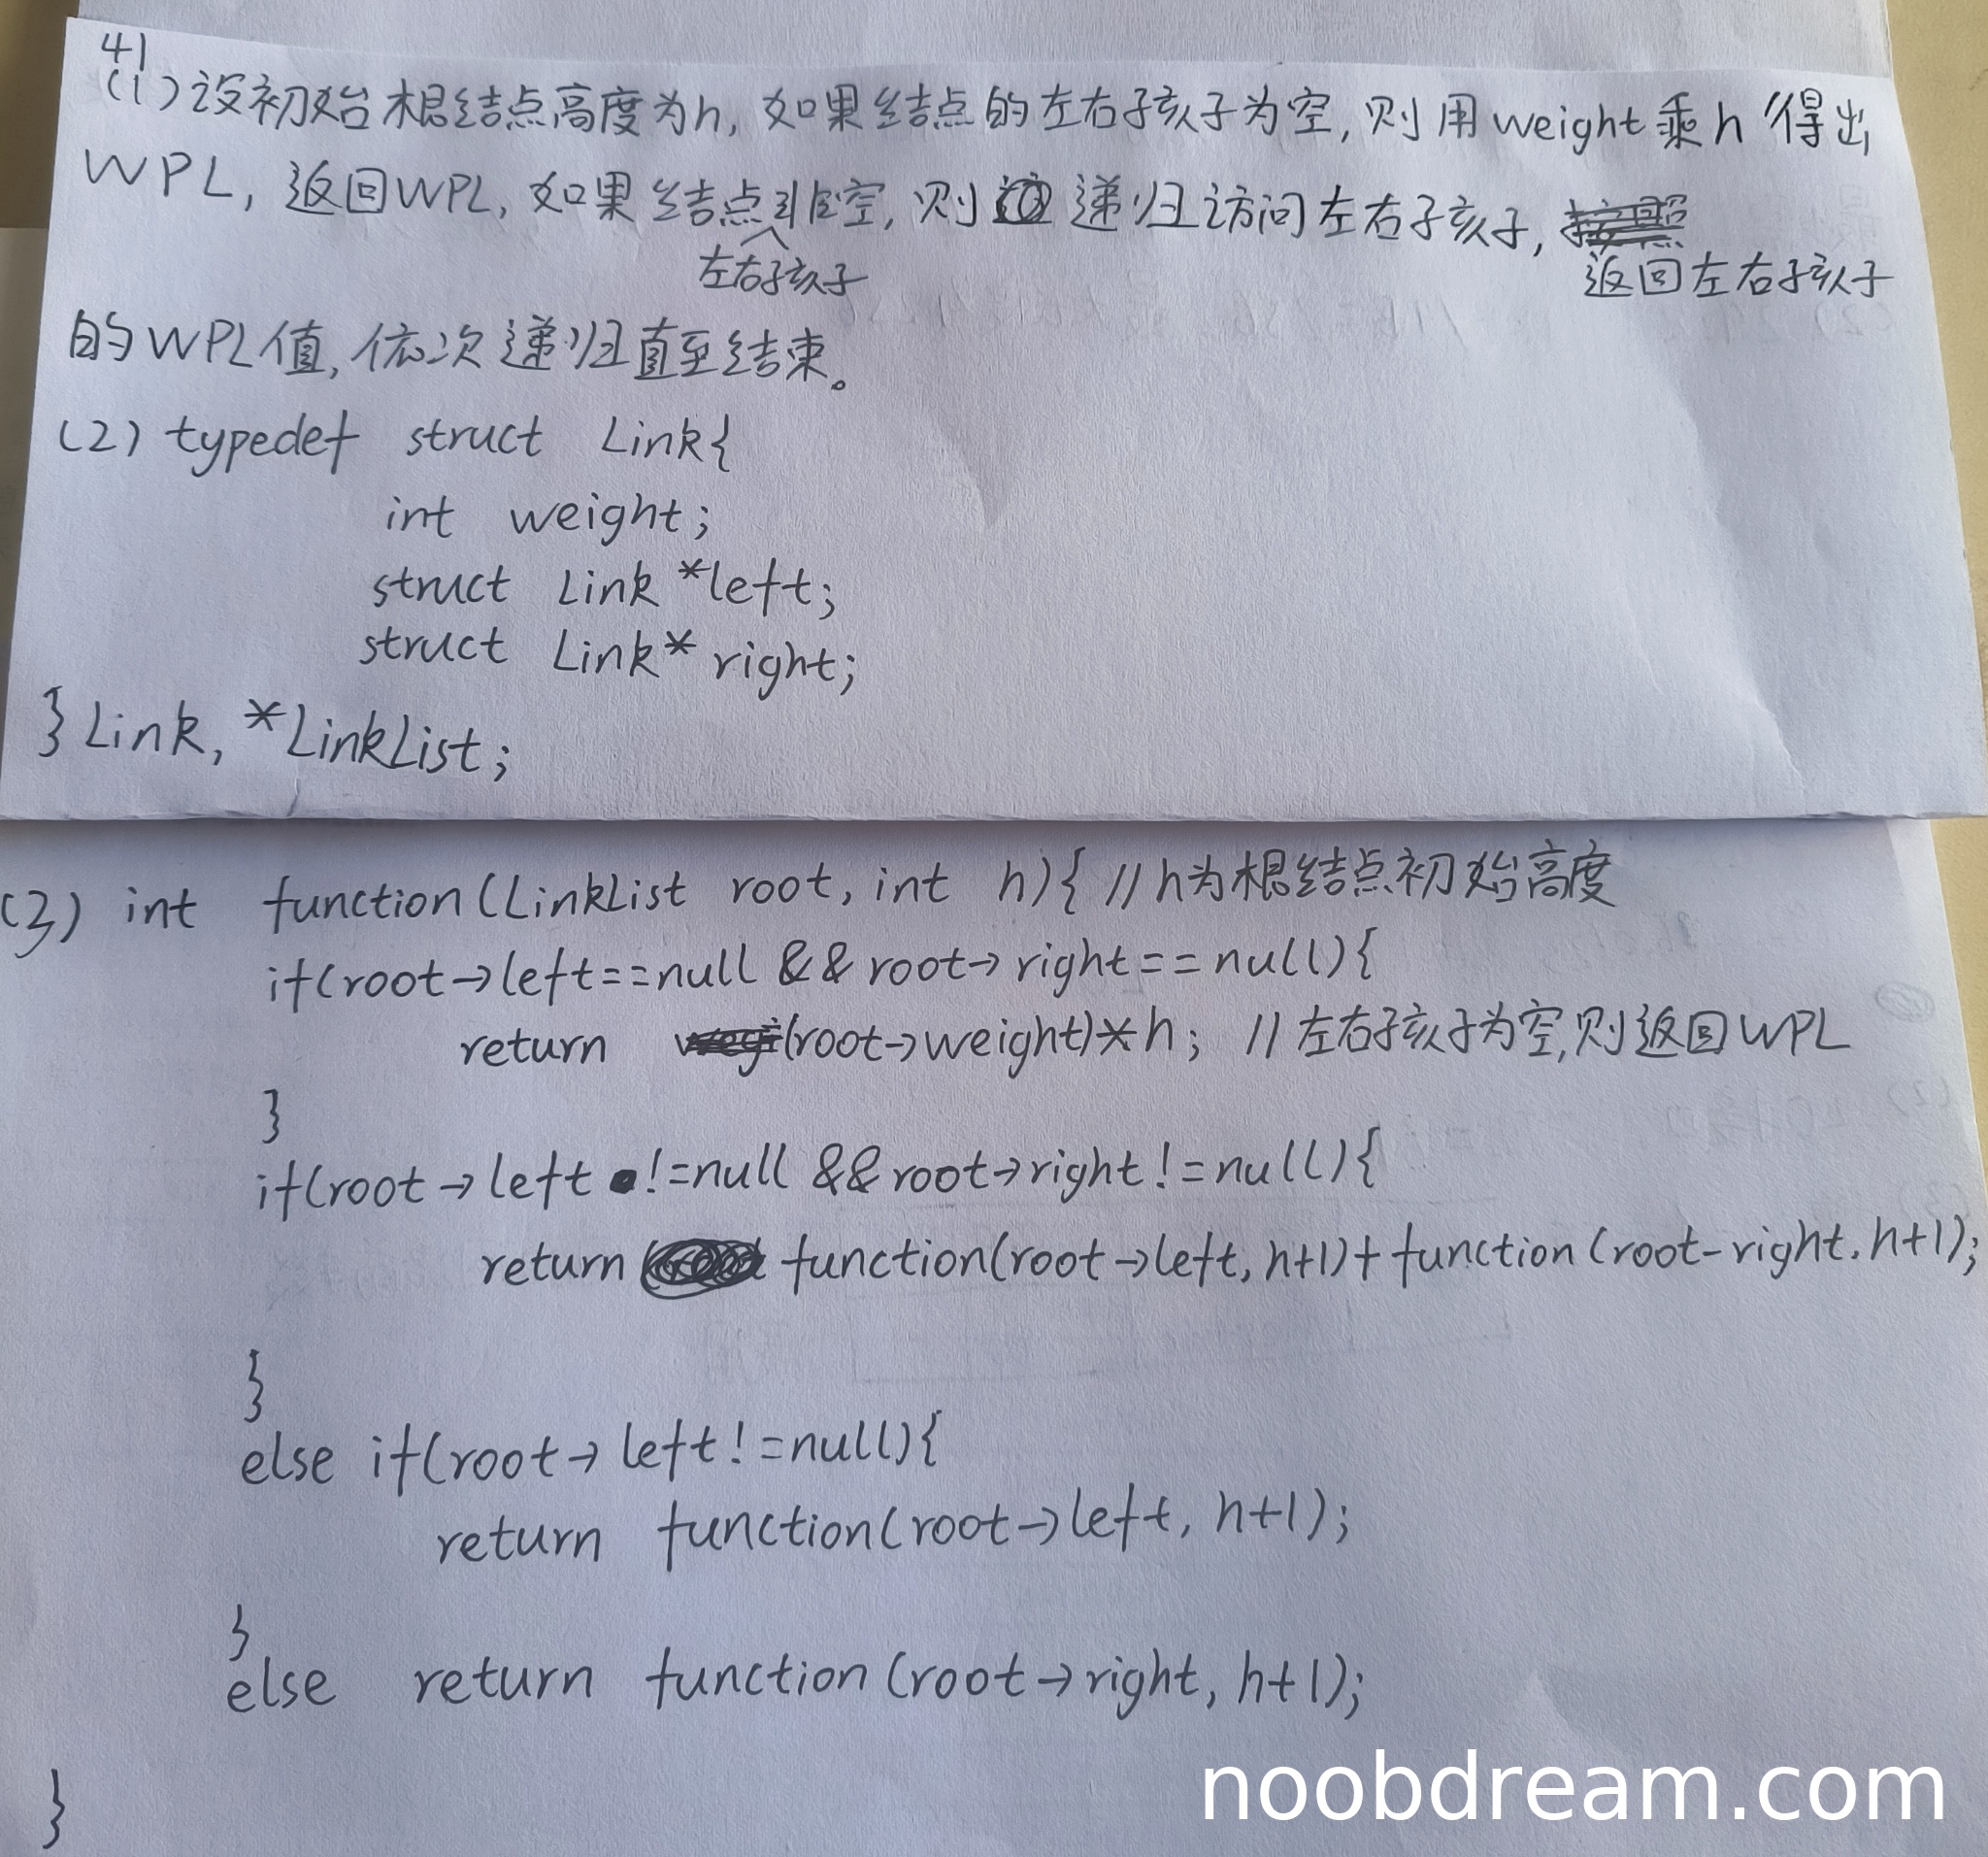 41
(1)设初始根结点高度为h,如果结点的左右子孩子为空,则用weight乘h得出
WPL,返回WPL,如果结点左右子孩子非空,则递归访问左右子孩子,返回左右子孩子
的WPL值,依次递归直至结束。
(2) typedef struct Link{
int weight;
struct Link *left;
struct Link* right;
}Link, *LinkList;
(3) int function(LinkList root, int h){ //h为根结点初始高度
if(root->left==null && root->right==null){
return (root->weight)*h; //左右子孩子为空,则返回WPL
}
if(root->left !=null && root->right!=null){
return function(root->left, h+1)+function(root-right, h+1);
}
else if(root->left!=null){
return function(root->left, h+1);
}
else return function(root->right, h+1);
}
noobdream.com